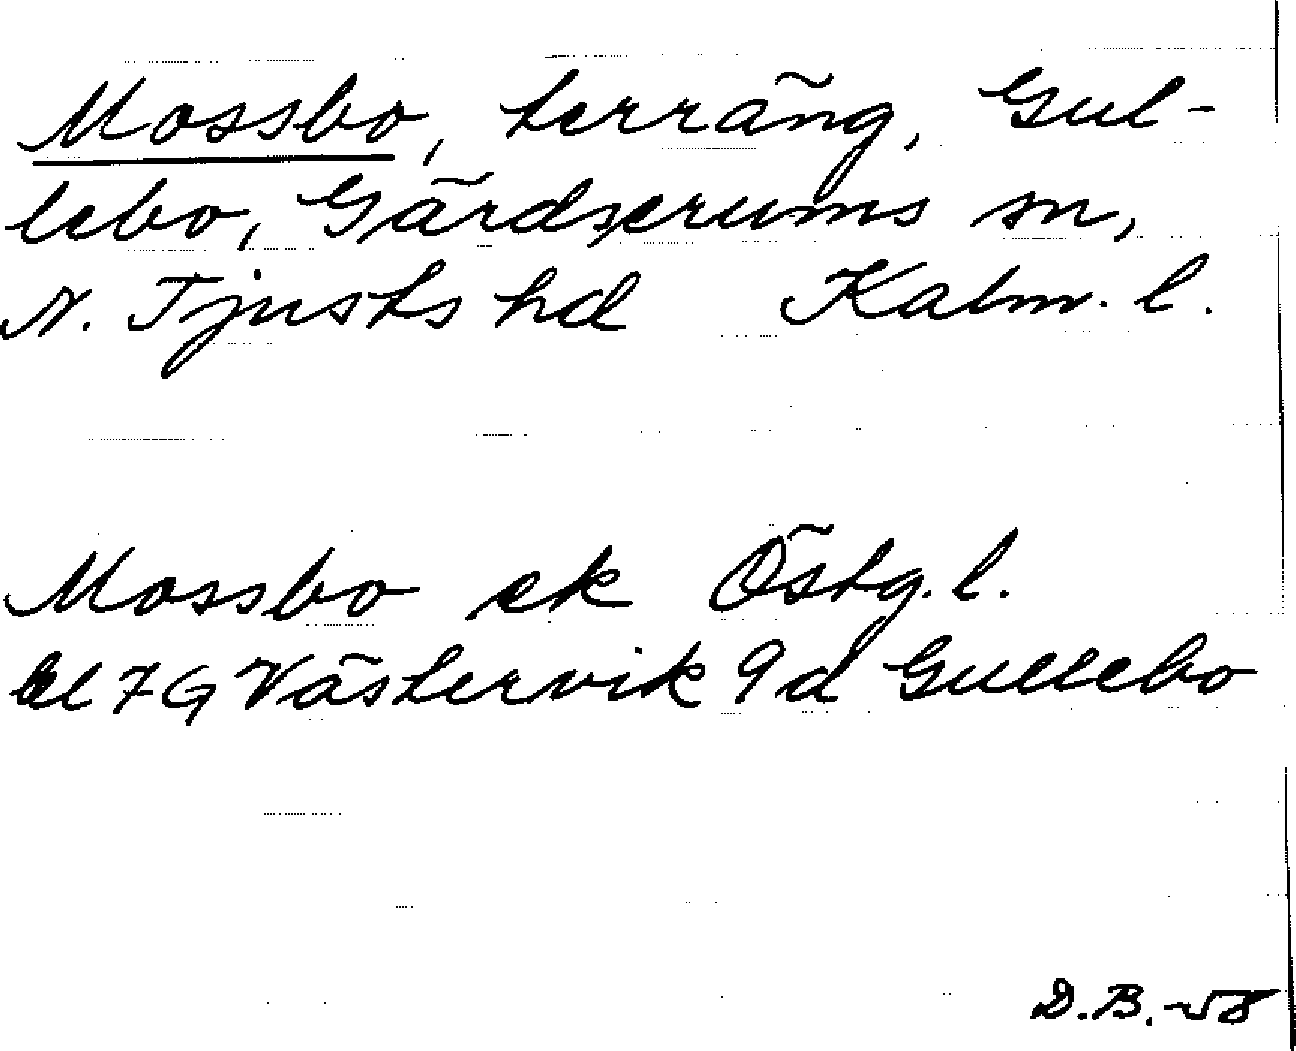 Mossbo, terräng, Gul-
lebo, Gärdserums sn,
N. Tjusts hd Kalm. l.
Mossbo ek Östg. l.
bl 7G Västervik 9d Gullebo
D.B. -58